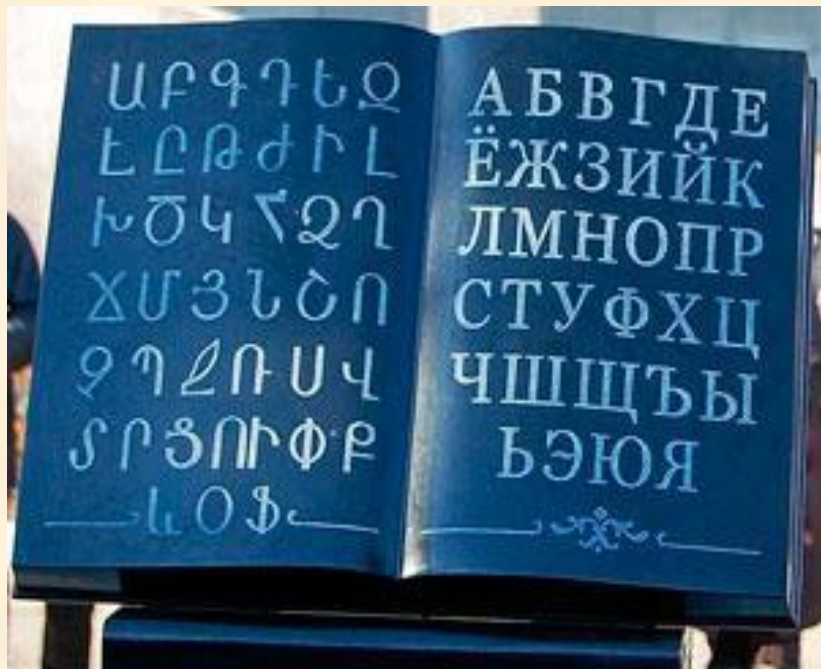 ԱԲԳԴԵԶ
ԷԸԹԺԻԼ
ԽԾԿՀՁՂ
ՃՄՅՆՇՈ
ՉՊՋՌՍՎ
ՏՐՑՈՒՓՔ
ևՕՖ
АБВГДЕ
ЁЖЗИЙК
ЛМНОПР
СТУФХЦ
ЧШЩЪЫ
ЬЭЮЯ